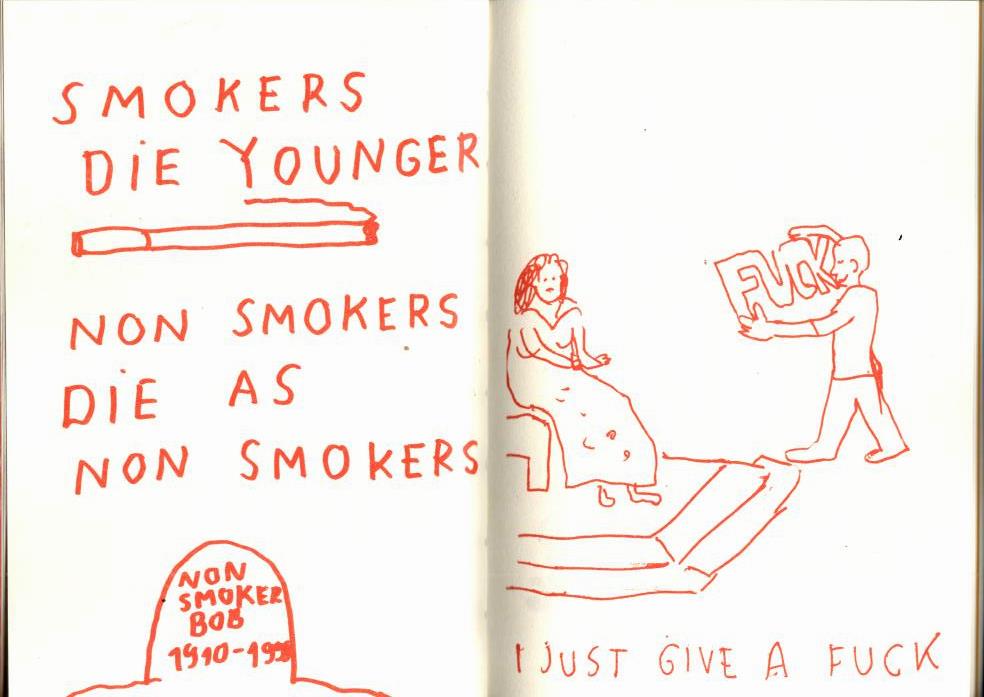 SMOKERS
DiE YOUNGER
NON SMOKERS
DiE AS
NON SMOKERS
NON
SMOKER
BOB
FUCK
I JUST GIVE A FUCK